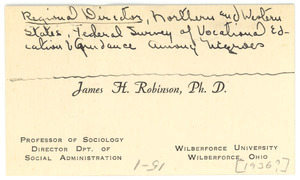 Regional Director, Northern and Western
States, Federal Survey of Vocational Ed-
ucation & Guidance Among Negroes
James H. Robinson, Ph. D.
Professor of Sociology
Director Dpt. of
Social Administration
Wilberforce University
Wilberforce, Ohio
15-1
[1936?]